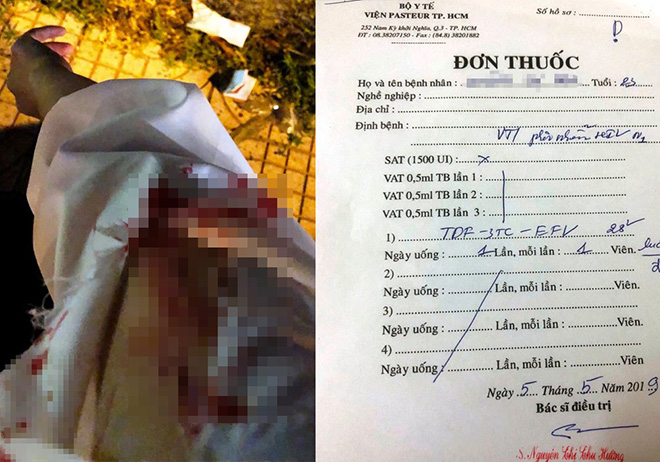 BỘ Y TẾ
VIỆN PASTEUR TP. HCM
252 Nam Kỳ khởi Nghĩa, Q.3 - TP. HCM
ĐT : 08.38207150 - Fax : (84.8) 38201882
Số hồ sơ :
ĐƠN THUỐC
Họ và tên bệnh nhân : Tuổi : 23
Nghề nghiệp :
Địa chỉ :
Định bệnh :
VT/ phơi nhiễm HIV N2
SAT (1500 UI) : x
VAT 0,5ml TB lần 1 :
VAT 0,5ml TB lần 2 :
VAT 0,5ml TB lần 3 :
1) TDF - 3TC - EFV 28v
Ngày uống : 1 Lần, mỗi lần : 1 Viên.
2)
Ngày uống : Lần, mỗi lần : Viên.
3)
Ngày uống : Lần, mỗi lần : Viên.
4)
Ngày uống : Lần, mỗi lần : Viên.
Ngày 5 Tháng 5 Năm 2019
Bác sĩ điều trị
S. Nguyễn Thị Thu Hường